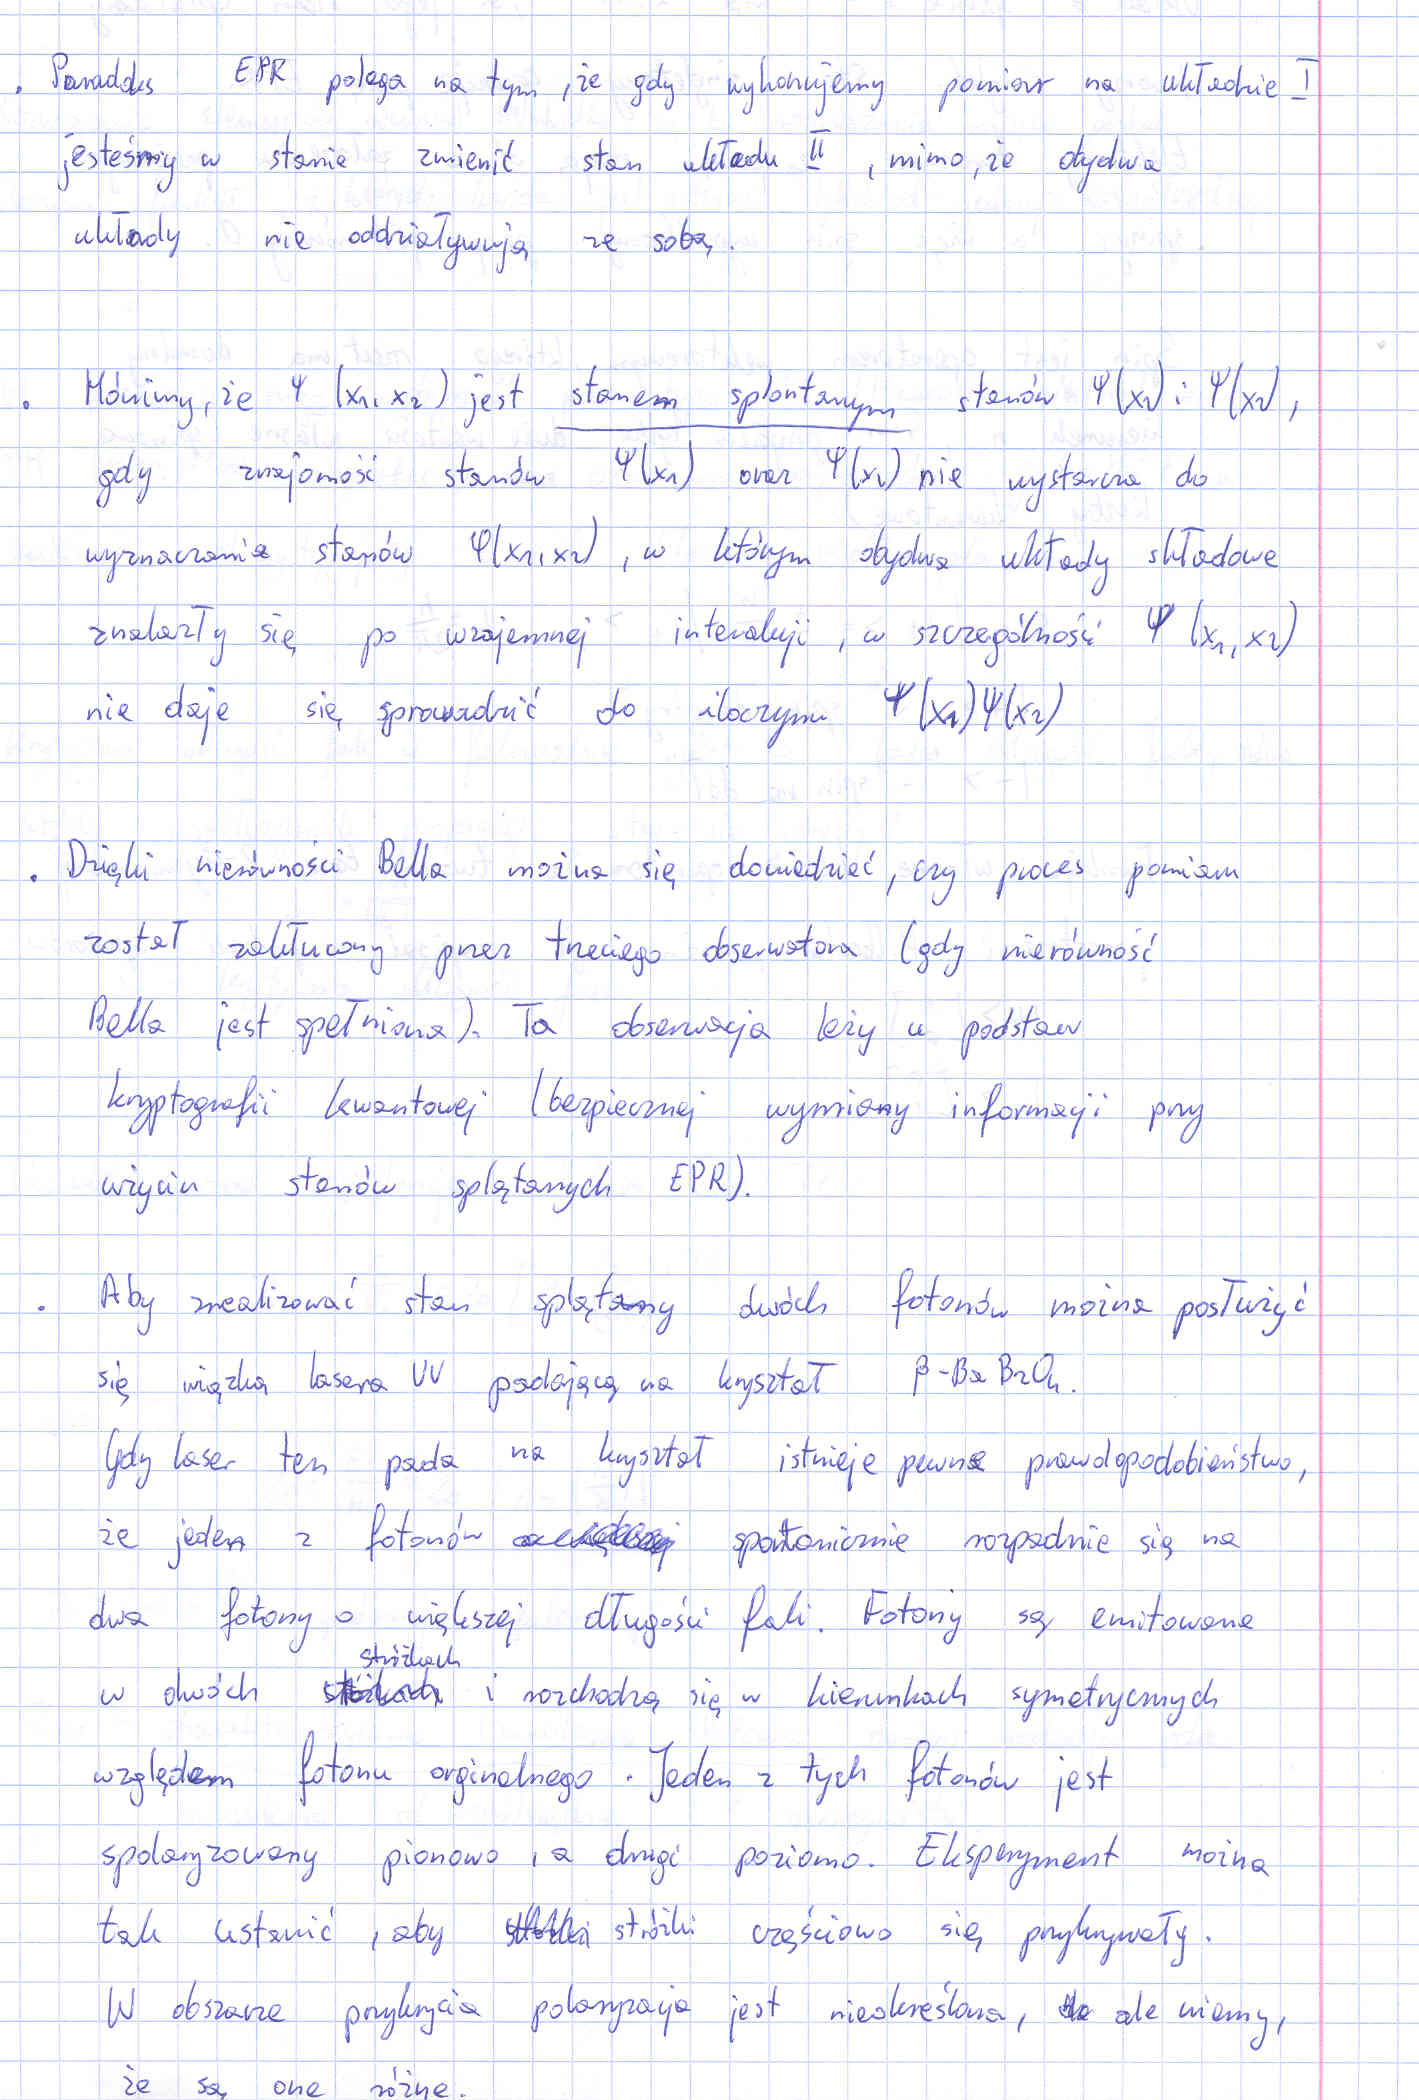 . Paradoks EPR polega na tym, że gdy wykonujemy pomiar na układzie I
jesteśmy w stanie zmienić stan układu II, mimo, że obydwa
układy nie oddziaływują ze sobą.
. Mówimy, że Ψ (x₁, x₂) jest stanem splontanym stanów Ψ(x₁) i Ψ(x₂),
gdy znajomość stanów Ψ(x₁) oraz Ψ(x₂) nie wystarcza do
wyznaczania stanów Ψ(x₁, x₂), w którym obydwa układy składowe
znalazły się po wzajemnej interakcji, w szczególności Ψ (x₁, x₂)
nie daje się sprowadzić do iloczynu Ψ(x₁)Ψ(x₂)
. Dzięki nierówności Bella można się dowiedzieć, czy proces pomiaru
został zakłucony przez trzeciego obserwatora (gdy nierówność
Bella jest spełniona). Ta obserwacja leży u podstaw
kryptografii kwantowej (bezpiecznej wymiany informacji przy
użyciu stanów splątanych EPR).
. Aby zrealizować stan splątany dwóch fotonów można posłużyć
się wiązką lasera UV padającą na kryształ β-Ba B₂O₄.
Gdy laser ten pada na kryształ istnieje pewne prawdopodobieństwo,
że jeden z fotonów spontanicznie rozpadnie się na
dwa fotony o większej długości fali. Fotony są emitowane
w dwóch stróżkach i rozchodzą się w kierunkach symetrycznych
względem fotonu orginalnego. Jeden z tych fotonów jest
spolaryzowany pionowo, a drugi poziomo. Eksperyment można
tak ustawić, aby stróżki częściowo się przykrywały.
W obszarze przykrycia polaryzacja jest nieokreślona, ale wiemy,
że są one różne.